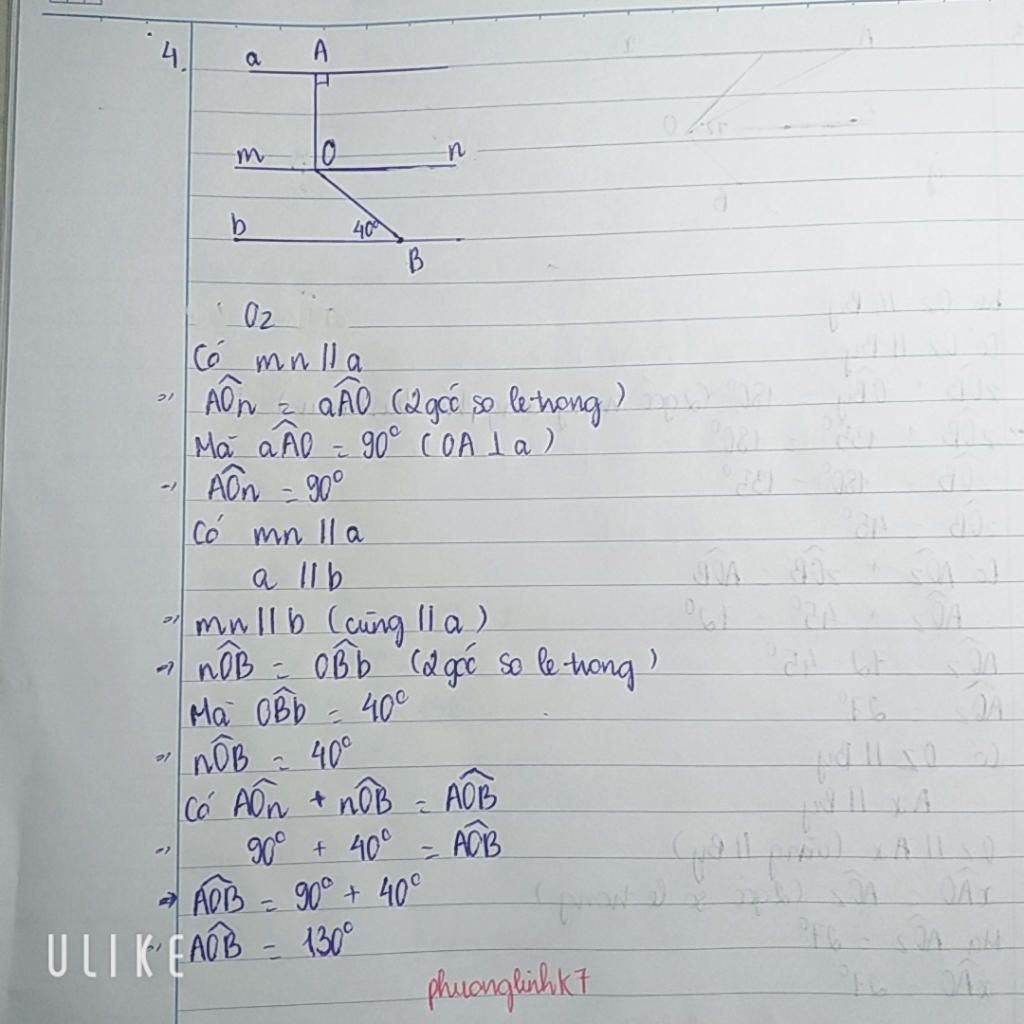 4.
a A
m O n
b 40° B
Oz
Có mn // a
=> AÔn = aÂO (2 góc so le trong)
Mà aÂO = 90° (OA ⊥ a)
=> AÔn = 90°
Có mn // a
a // b
=> mn // b (cùng // a)
=> nÔB = OB̂b (2 góc so le trong)
Mà OB̂b = 40°
=> nÔB = 40°
Có AÔn + nÔB = AÔB
=> 90° + 40° = AÔB
=> AÔB = 90° + 40°
=> AÔB = 130°
ULIKE
phuonglinhk7